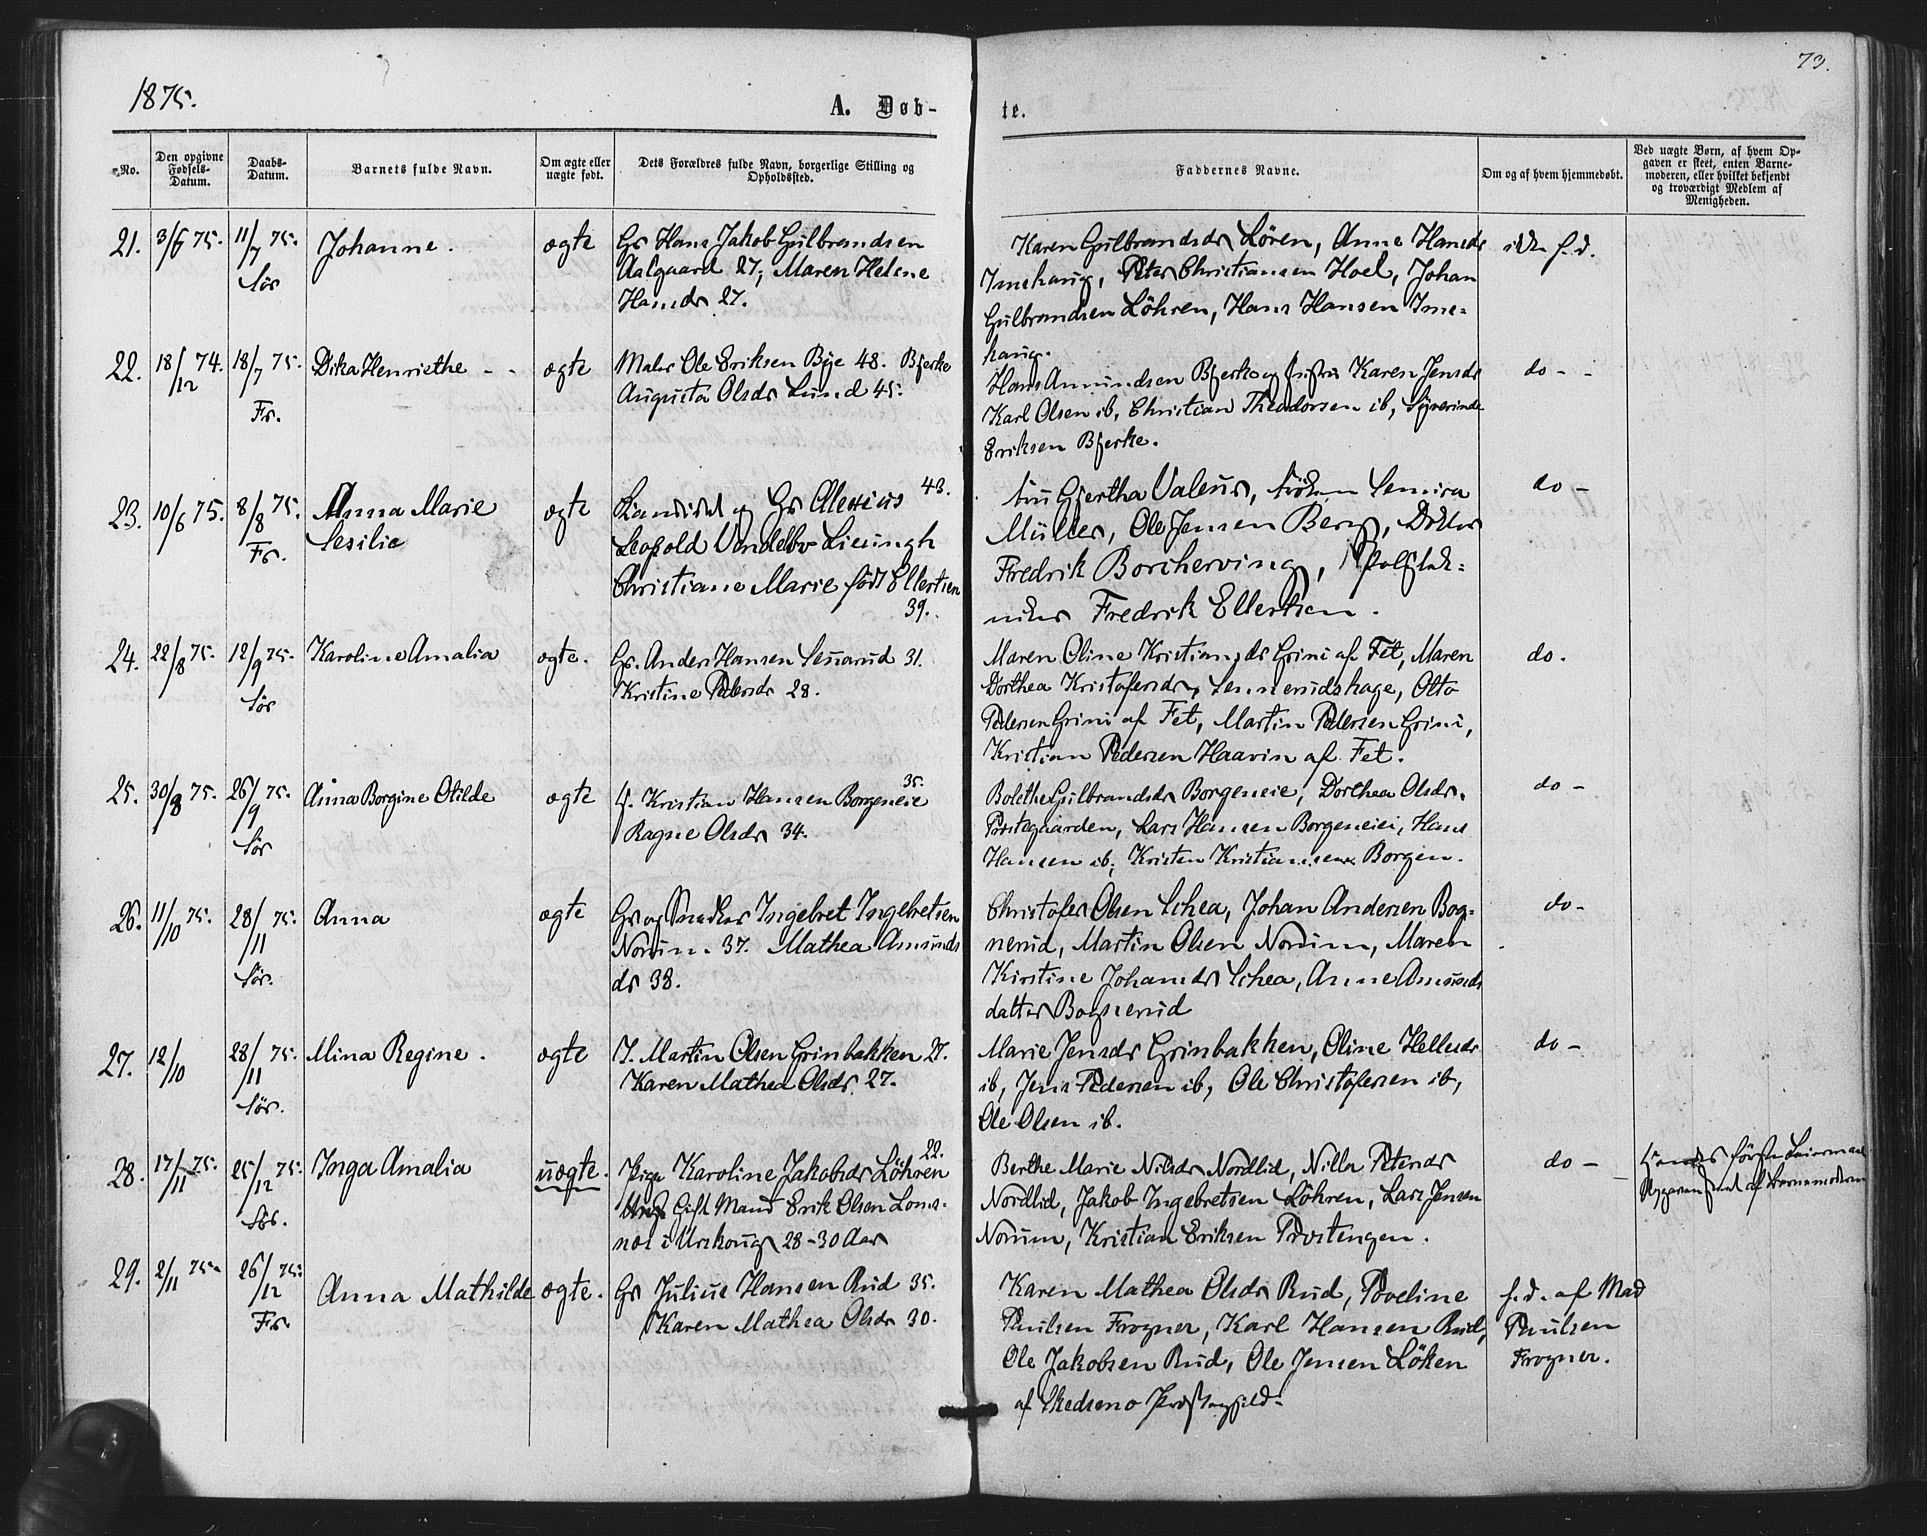 73.
1875.
A. Døb-
te.
No.
Den opgivne Fødsels-Datum.
Daabs-Datum.
Barnets fulde Navn.
Om ægte eller uægte født.
Dets Forældres fulde Navn, borgerlige Stilling og Opholdssted.
Faddernes Navne.
Om og af hvem hjemmedøbt.
Ved uægte Børn, af hvem Op-
gaven er skeet, enten Barne-
moderen, eller hvilket bekjendt
og troværdigt Medlem af
Menigheden.
21. 3/6 75. 11/7 75. Sør Johanne. ægte
Gr Hans Jakob Gulbrandsen
Aalgaard 27, Maren Helene
Hansdr 27.
Karen Gulbrandsdr Lören, Anne Hansdr
Imehaug, Peter Christiansen Hoel, Johan
Gulbrandsen Löhren, Hans Hansen Ime-
haug.
f. d.
22. 18/12 74. 18/7 75. Fr. Dika Henriethe - - ægte
Maler Ole Eriksen Bye 48. Bjerke
Augusta Olsdr Lund 45.
Hans Amundsen Bjerke og Karen Jensdr
Karl Olsen ib, Christian Theodorsen ib, Syverinde
Eriksen Bjerke.
do - -
23. 10/6 75. 8/8 75. Fr. Anna Marie
Sesilie
ægte
og Gr Alexius 43.
Leopold Lieungh
Christiane Marie født Ellertsen
39.
Gjertha Valeur,
Müller, Ole Jensen Berg, Doktor
Fredrik Borchgrevink,
Fredrik Ellertsen.
do -
24. 22/8 75. 12/9 75. Sør Karoline Amalia ægte.
Gr. Anders Hansen 31.
Kristine Pedersdr 28.
Maren Oline Kristiansdr Grini af Fet, Maren
Dorthea Kristofersdr, Otto
Pedersen Grini af Fet, Martin Pedersen Grini,
Kristian Pedersen Haavin af Fet.
do.
25. 30/8 75. 26/9 75. Sør Anna Borgine Otilde ægte
Kristian Hansen Borgeneie 35.
Ragne Olsdr 34.
Bolethe Gulbrandsdr Borgeneie, Dorthea Olsdr,
Prestegaarden, Lars Hansen Borgeneiei, Hans
Hansen ib, Kristen Kristiansen Borgen.
do -
26. 11/10 75. 28/11 75. Sør. Anna ægte
Gr og Snedker Ingebret Ingebretsen
Norum. 37. Mathea Amunds
dr 38.
Christofer Olsen Schea, Johan Andersen Bog-
nerud, Martin Olsen Norum, Maren
Kirstine Johansdr Schea, Anne Amunds
datter Bognerud
do -
27. 12/10 28/11 75. Sør. Mina Regine. ægte
I. Martin Olsen Grinbakken 27.
Karen Mathea Olsdr 27.
Marie Jensdr Grinbakken, Oline Hellesdr
ib, Jens Pedersen ib, Ole Christofersen ib,
Ole Olsen ib.
do -
28. 17/11 75. 25/12 75. Sør. Inga Amalia uægte.
Pige Karoline Jakobsdr Löhren 22.
Gift Mand Erik Olsen Loms-
næs i Urskoug 28-30 Aar
Berthe Marie Nilsdr Nordlid, Nilla Petersdr
Nordlid, Jakob Ingebretsen Löhren, Lars Jensen
Norum, Kristian Eriksen Prestengen.
do -
første Leiermaal
af Barnemoderen
29. 2/11 75. 26/12 75. Fr. Anna Mathilde ægte.
Gr Julius Hansen Rud 35.
Karen Mathea Olsdr 30.
Karen Mathea Olsdr Rud, Poveline
Paulsen Frogner, Karl Hansen Rud,
Ole Jakobsen Rud, Ole Jensen Löken
af Skedsmo Præstegjeld.
f. d. af Mad
Paulsen
Frogner.